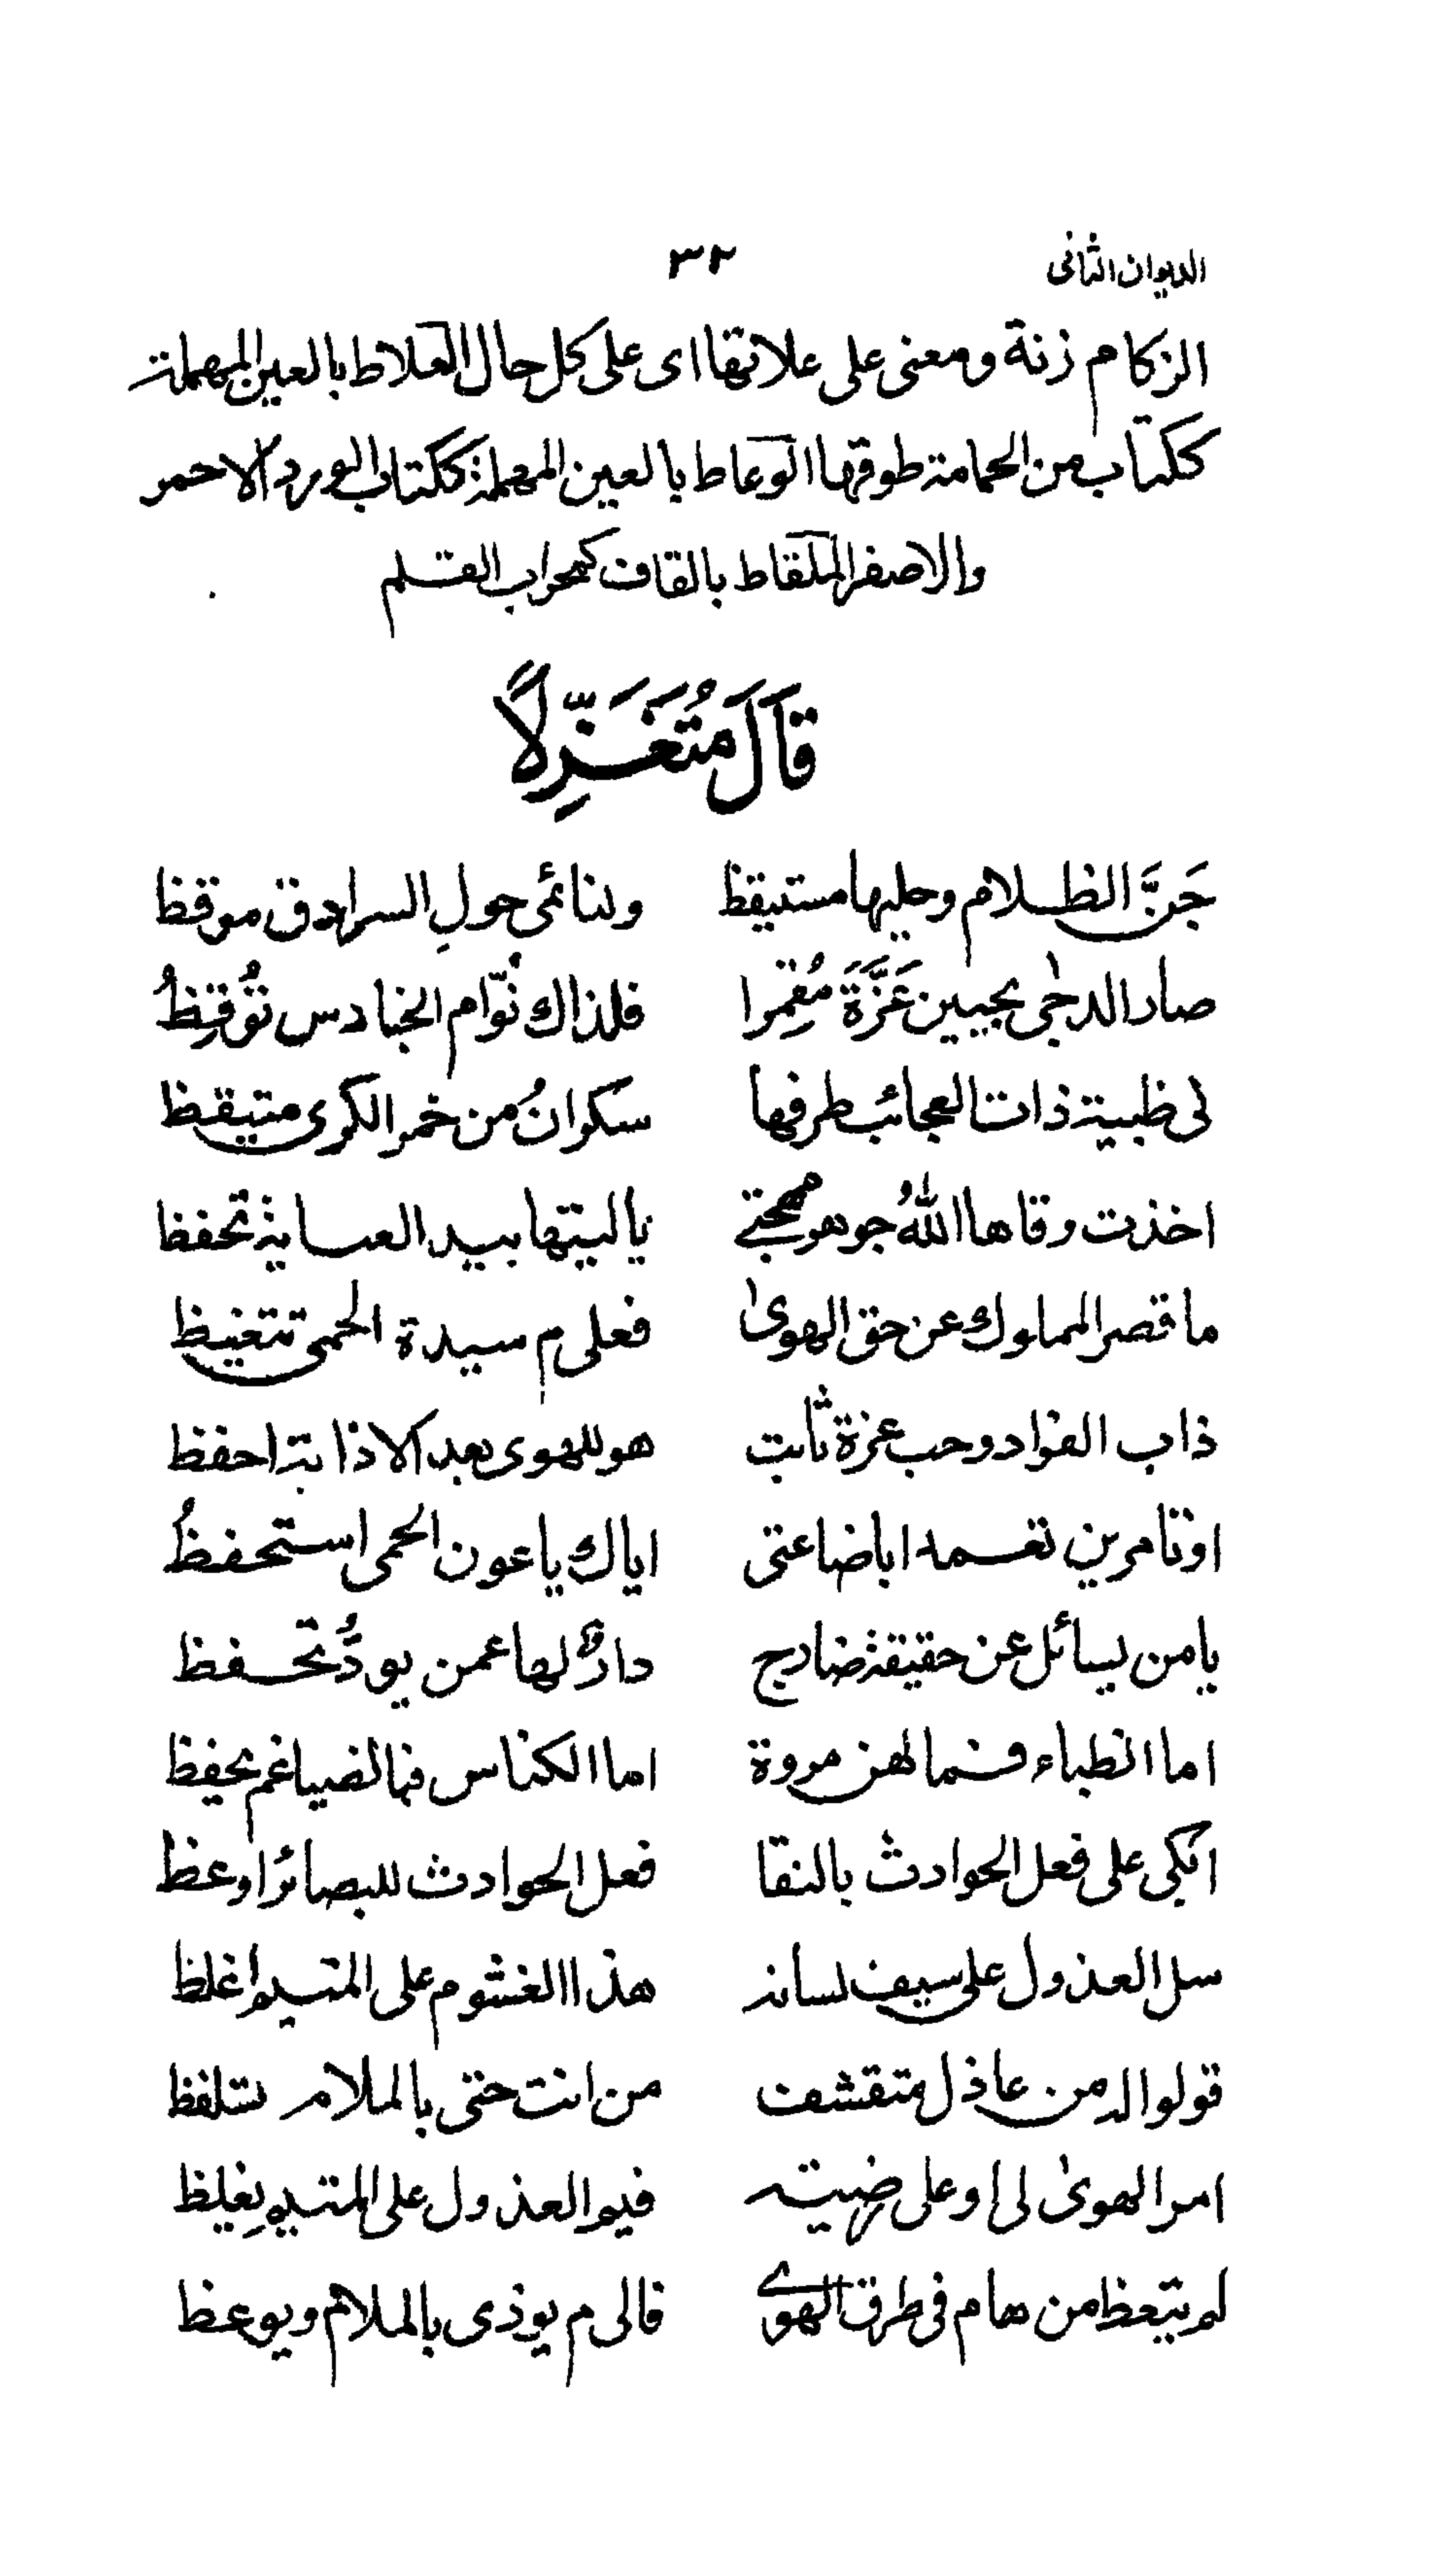 الديوان الثانى ٣٢
الزكام زنة ومعنى على علاتها اى على كل حال العلاط بالعين المهملة
ككتاب من الحمامة طوقها الوعاط بالعين المهملة ككتاب الورد الاحمر
والاصفر الملقاط بالقاف كمحراب القلم
قَالَ مُتَغَزِّلًا
جَنَّ الظلام وحليها مستيقظ ولنائمى حولِ السرادق موقظ
صار الدجٰى بجبين عَزَّةَ مُقمِرا فلذاك نُوّام الحنادس تُوقِظُ
لى ظبية ذات العجائب طرفها سكرانُ من خمر الكرى متيقظ
اخذت وقاها اللهُ جوهر مهجتے ياليتها بيد العساية تحفظ
ما قصر المملوك عن حق الهوىٰ فعلى م سيدة الحمى تتغيظ
ذاب الفواد وحب عزة ثابت هو للهوى بعد الاذابة احفظ
اوتامرين تعمدا باضاعتى اياك ياعون الحمى استحفظُ
يامن يسائل عن حقيقة ضارج دارٌ لها عمن يودُّ تحفظ
اما الظباء فما لهن مروة اما الكناس فبالضياغم يحفظ
ابكى على فعل الحوادث بالنقا فعل الحوادث للبصائر اوعظ
سل العذول على سيف لسانه هذا الغشوم على المتيم اغلظ
قولوا له من عاذل متقشف من انت حتى بالملام تتلفظ
امر الهوىٰ لى او على رضيته فيم العذول على المتيم يِغليظ
لم يتعظ من هام فى طرق الهوے فالى م يوذى بالملام ويوعظ